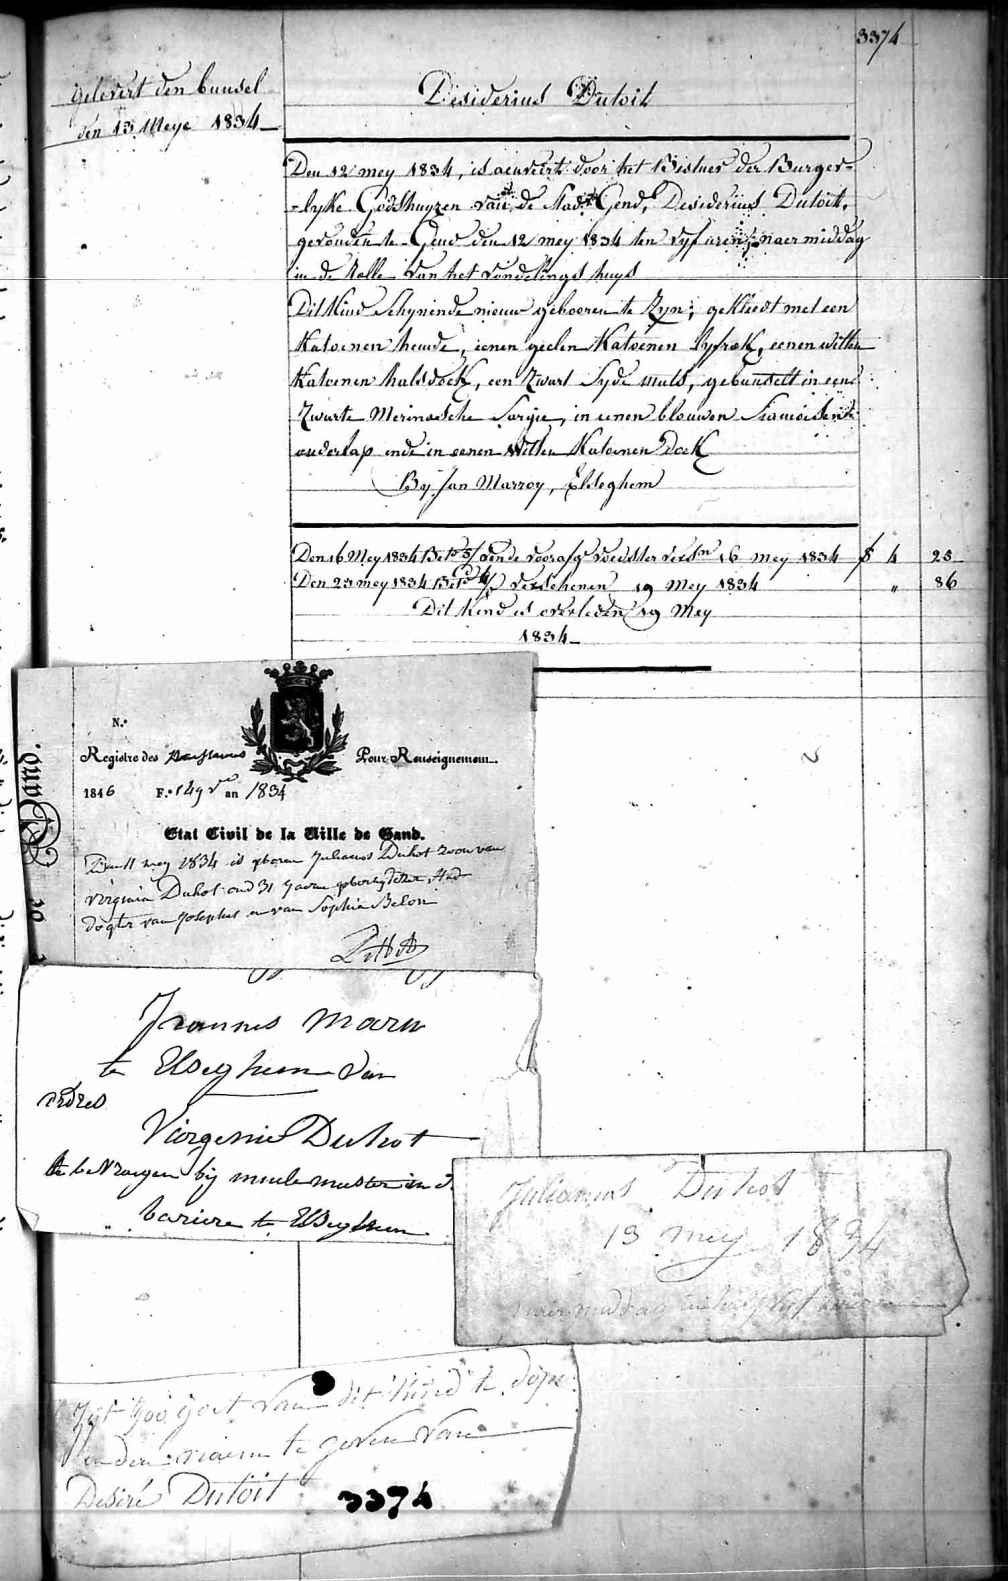 3374
gelevert den bunsel
den 13 Meye 1834
Desiderius Dutoit
Den 12 mey 1834, is aenveert door het Bestuer der Burger-
-lyke Godshuyzen van de Stad Gend, Desiderius Dutoit,
gevonden te Gend den 12 mey 1834 ten vyf uren naer middag
in de Rolle van het vondelings huys
Dit Kind schynende nieuw gebooren te Zyn; gekleedt met een
Katoenen hemde, eenen geelen Katoenen Lyfrok, eenen witten
Katoenen halsdoek, een Zwart Syde muts, gebunselt in eene
Zwarte Merinosche Sargie, in eenen blauwen Siamoisen
onderlap ende in eenen Witten Katoenen Doek
By Jan Marroy, Elseghem
Den 16 Mey 1834 Bet. 3/ den de voorafg. voedster versn 16 mey 1834 4 23
Den 23 mey 1834 Bet. verschenen 19 mey 1834 " 86
Dit Kind is overleden 19 mey
1834
N.º
Registre des Naissances Pour Renseignement.
1846 F.º 149 vº an 1834
Etat Civil de la Ville de Gand.
Den 11 mey 1834 is geboren Julianus Duhot zoon van
Virginia Duhot oud 31 jaeren geboortig dezer Stad
dogter van Josephus en van Sophia Belon
Joannes Maru
te Elseghem van
ordres
Viergenie Duhot
te bevraegen bij meulemeester in d
bariere te Elseghem
Julianus Duhot
13 mey 1834
naermiddag
Zijt zoo goet van dit Kind te dopen
den naem te geven van
Desiré Dutoit
3374